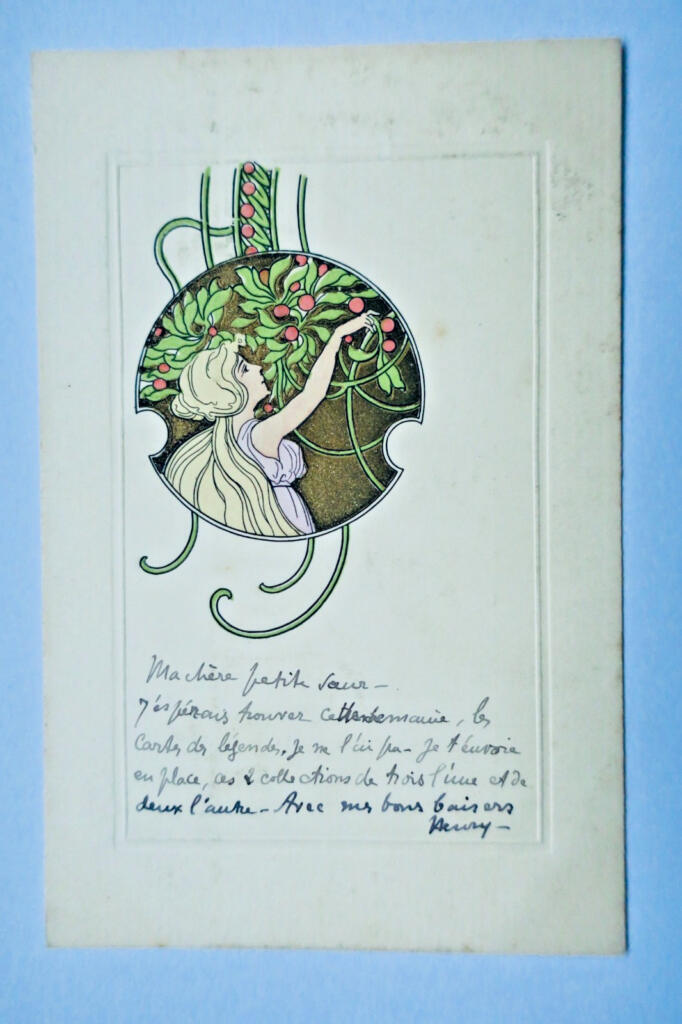 Ma chère petite sœur –
J'espérais trouver cette semaine, les
Cartes des légendes, je ne l'ai pu – Je t'envoie
en place, ces 2 collections de trois l'une et de
deux l'autre – Avec mes bons baisers
Henry –